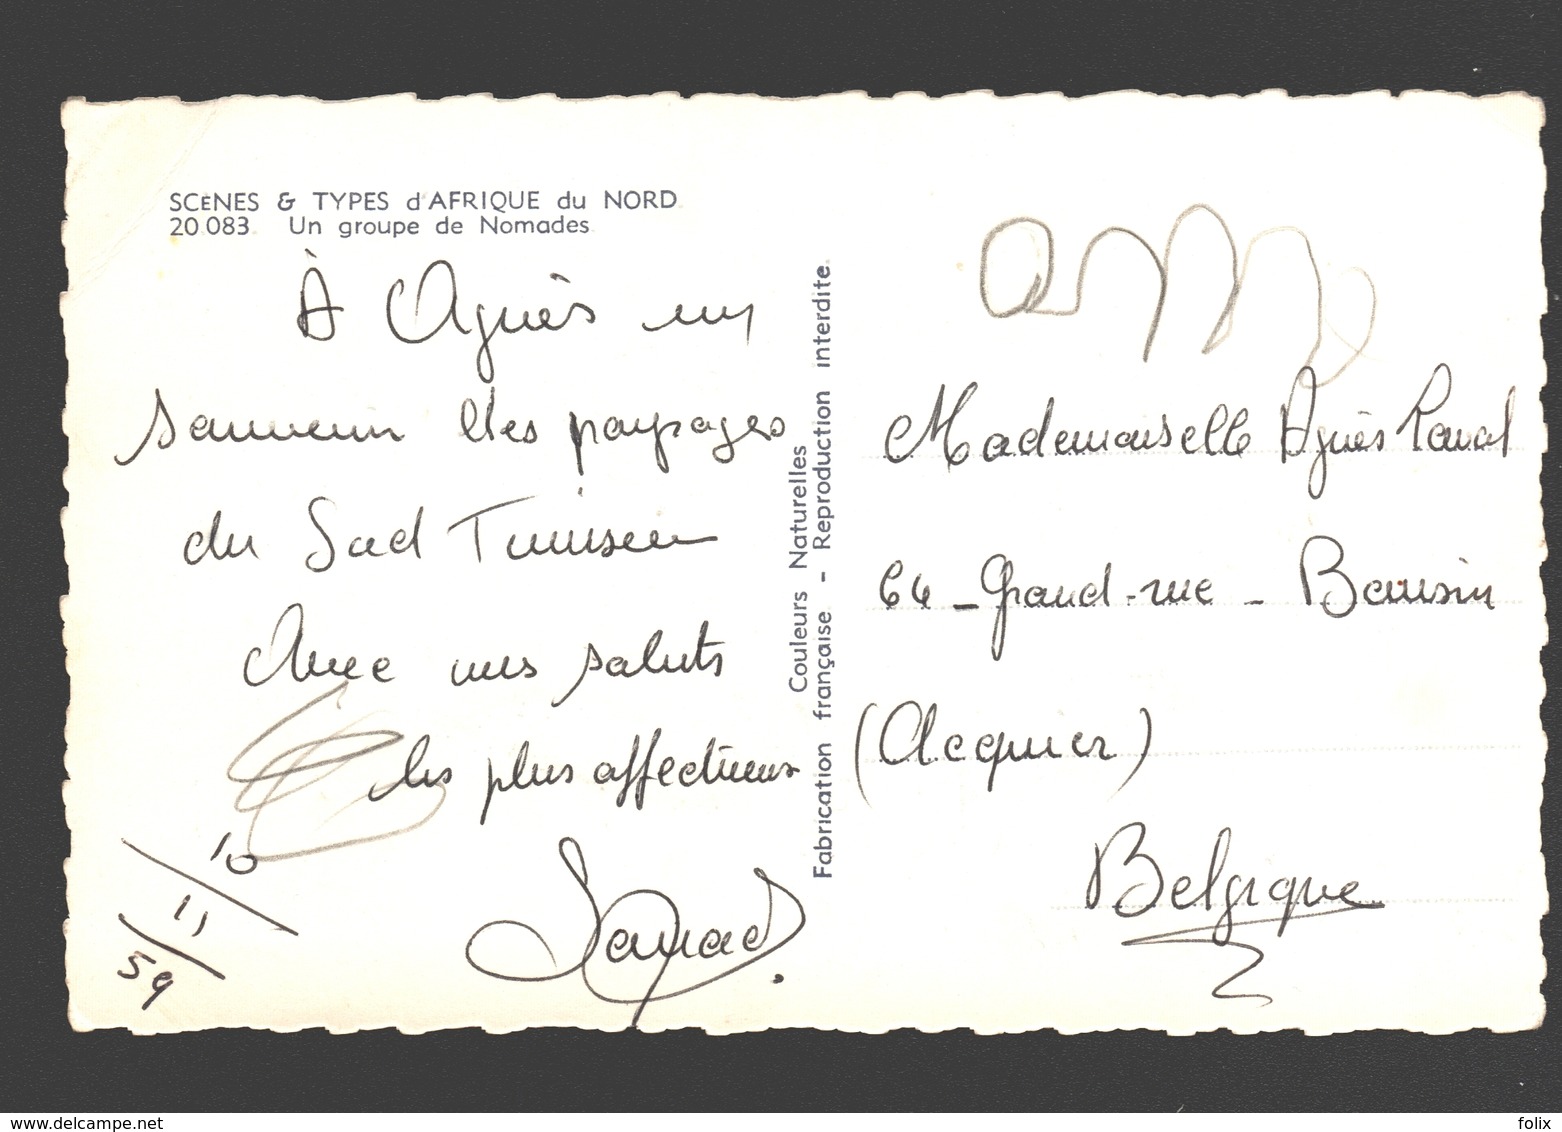 SCÈNES & TYPES d'AFRIQUE du NORD
20.083 Un groupe de Nomades
À Agnès un
souvenir des paysages
du Sud Tunisien
Avec mes saluts
les plus affectueux
10
11
59
Couleurs Naturelles
Fabrication française - Reproduction interdite
Mademoiselle Agnès
64 - Grand-rue - Bausin
(Acquier)
Belgique
www.delcampe.net
folix